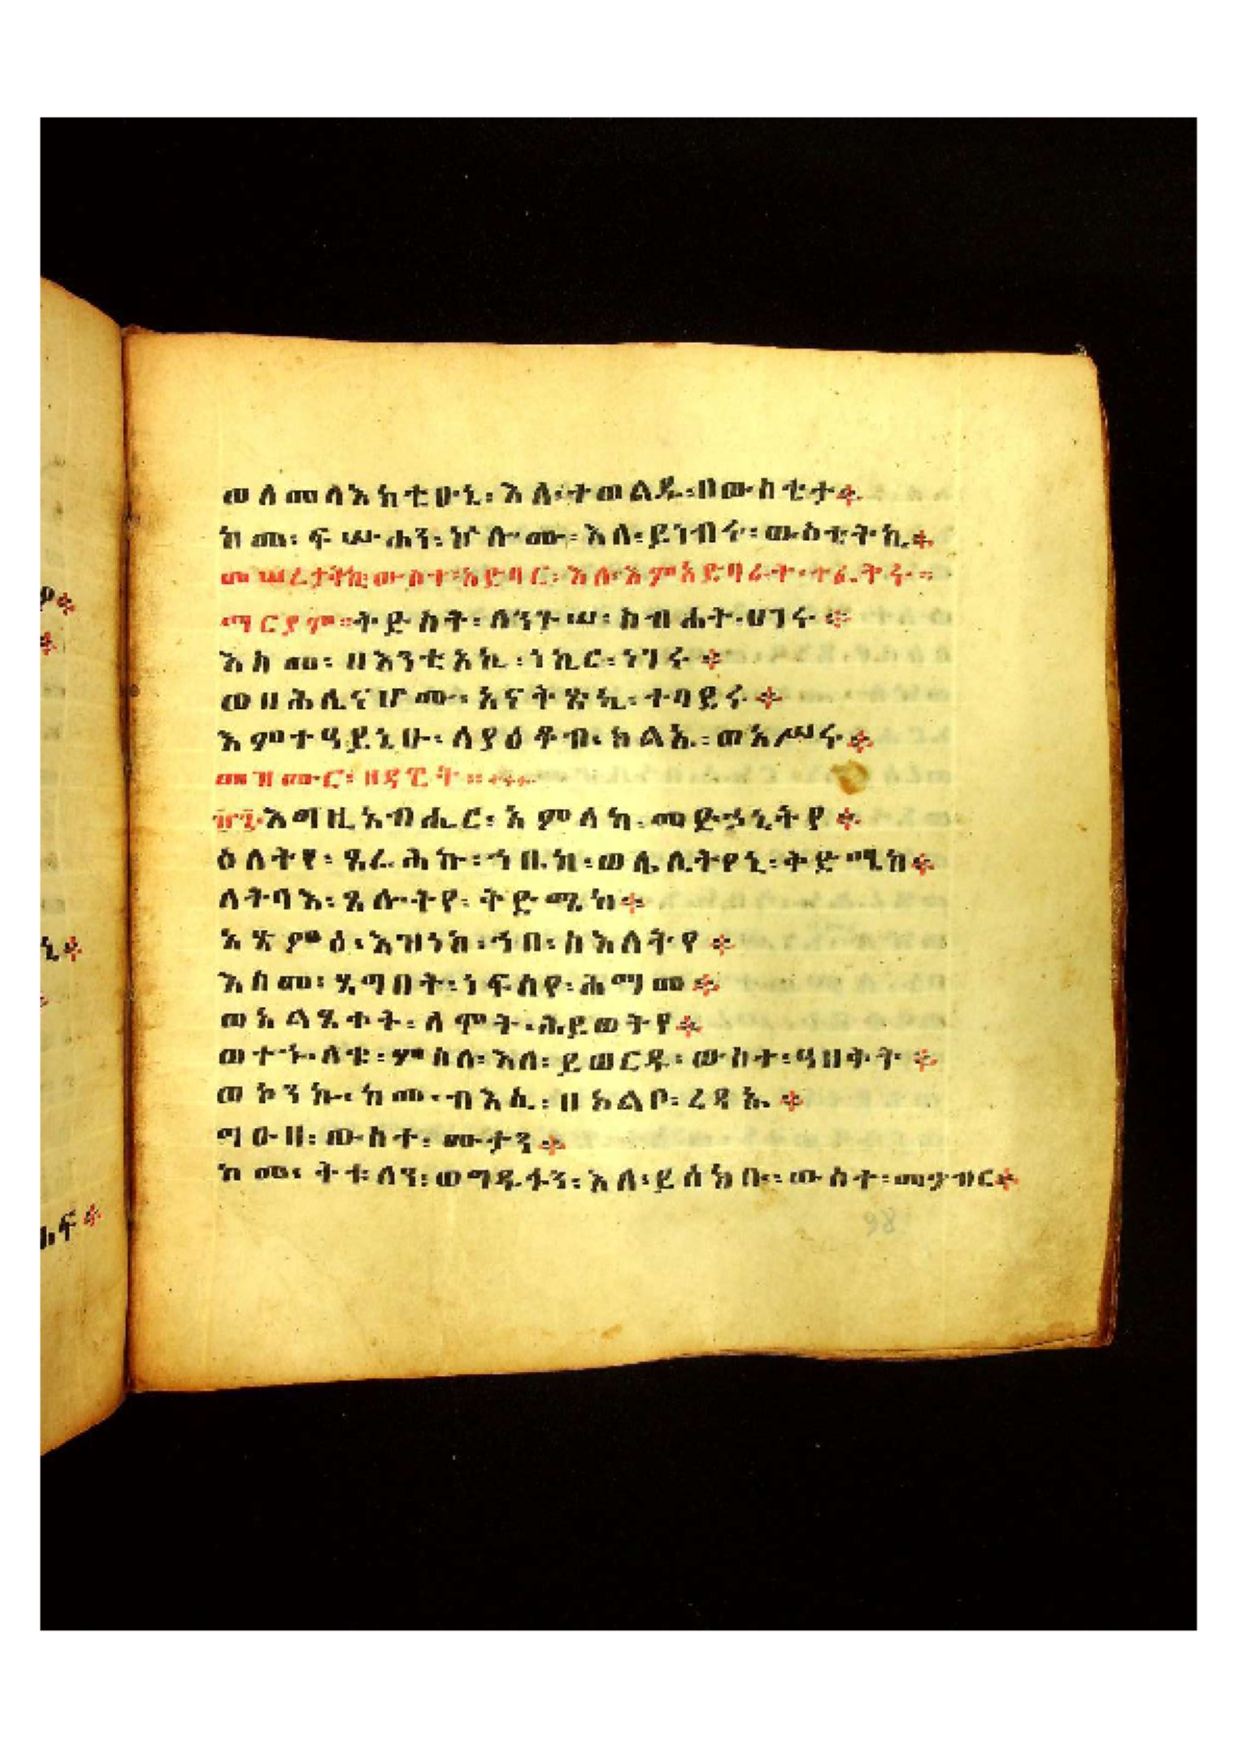 ወለመላእክቲሁኒ፡ እለ፡ ተወልዱ፡ በውስቲታ፨
ከመ፡ ፍሡሐን፡ ኵሎሙ፡ እለ፡ ይነብሩ፡ ውስቴትኪ፨
መሠረታትኪ፡ ውስተ፡ አድባር፡ እሉ፡ እምአድባራት፡ ተፈትሩ።
ማርያም። ቅድስት፡ ለንጉሠ፡ ስብሐት፡ ሀገሩ፨
እስመ፡ በእንቲአኪ፡ ነኪር፡ ነገሩ፨
ወዘሕሊናሆሙ፡ አናቅጽኪ፡ ተባይሩ፨
እምተዓይኒሁ፡ ለያዕቆብ፡ ክልኤ፡ ወአሥሩ፨
መዝሙር፡ ዘዳዊት።
፹፯ እግዚአብሔር፡ አምላከ፡ መድኃኒትየ፨
ዕለትየ፡ ጸራሕኩ፡ ኀቤከ፡ ወሌሊትየኒ፡ ቅድሜከ፨
ለትባእ፡ ጸሎትየ፡ ቅድሜከ፨
አጽምዕ፡ እዝነከ፡ ኀበ፡ ስእለትየ፨
እስመ፡ ጸግበት፡ ነፍስየ፡ ሕማመ፨
ወአልጸቀት፡ ለሞት፡ ሕይወትየ፨
ወተኈለቁ፡ ምስለ፡ እለ፡ ይወርዱ፡ ውስተ፡ ዓዘቅት፨
ወኮንኩ፡ ከመ፡ ብእሲ፡ ዘአልቦ፡ ረዳኤ፨
ግዑዘ፡ ውስተ፡ ሙታን፨
ከመ፡ ቅቱላን፡ ወግዱፋን፡ እለ፡ ይሰክቡ፡ ውስተ፡ መቃብር፨
98